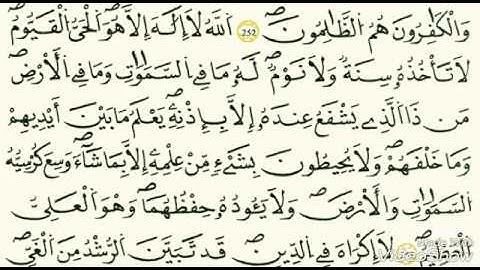 وَالْكَٰفِرُونَ هُمُ الظَّٰلِمُونَ ۝252 اللَّهُ لَا إِلَٰهَ إِلَّا هُوَ الْحَيُّ الْقَيُّومُ
لَا تَأْخُذُهُ سِنَةٌ وَلَا نَوْمٌ لَهُ مَا فِي السَّمَٰوَٰتِ وَمَا فِي الْأَرْضِ
مَن ذَا الَّذِي يَشْفَعُ عِندَهُ إِلَّا بِإِذْنِهِ يَعْلَمُ مَا بَيْنَ أَيْدِيهِمْ
وَمَا خَلْفَهُمْ وَلَا يُحِيطُونَ بِشَيْءٍ مِّنْ عِلْمِهِ إِلَّا بِمَا شَاءَ وَسِعَ كُرْسِيُّهُ
السَّمَٰوَٰتِ وَالْأَرْضَ وَلَا يَئُودُهُ حِفْظُهُمَا وَهُوَ الْعَلِيُّ
الْعَظِيمُ لَا إِكْرَاهَ فِي الدِّينِ قَد تَّبَيَّنَ الرُّشْدُ مِنَ الْغَيِّ